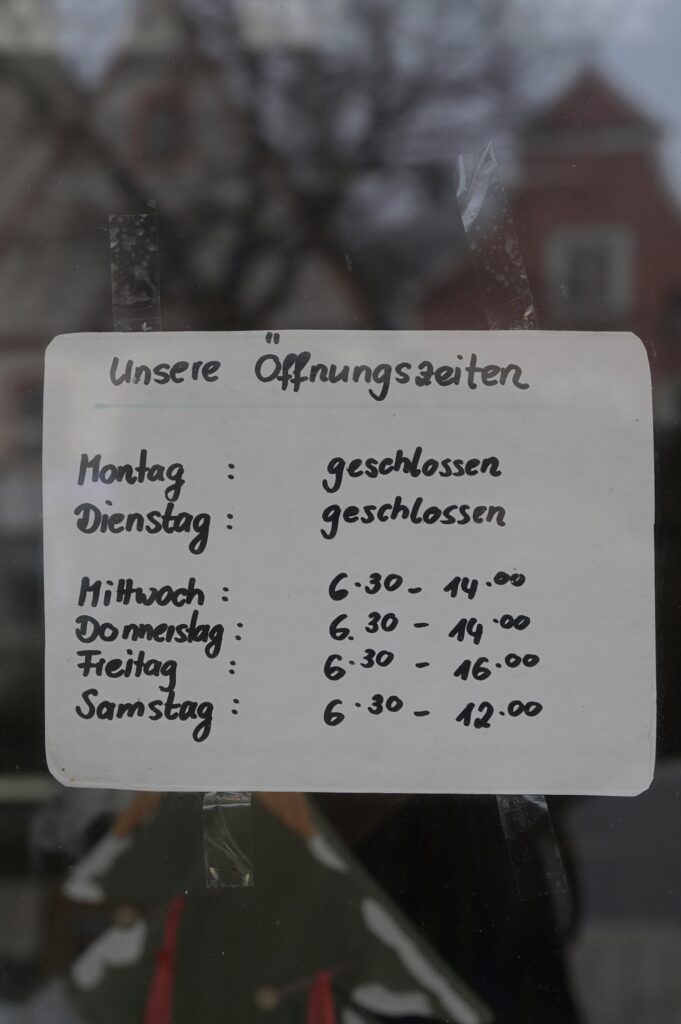 Unsere Öffnungszeiten
Montag : geschlossen
Dienstag : geschlossen
Mittwoch : 6.30 - 14.00
Donnerstag : 6.30 - 14.00
Freitag : 6.30 - 16.00
Samstag : 6.30 - 12.00